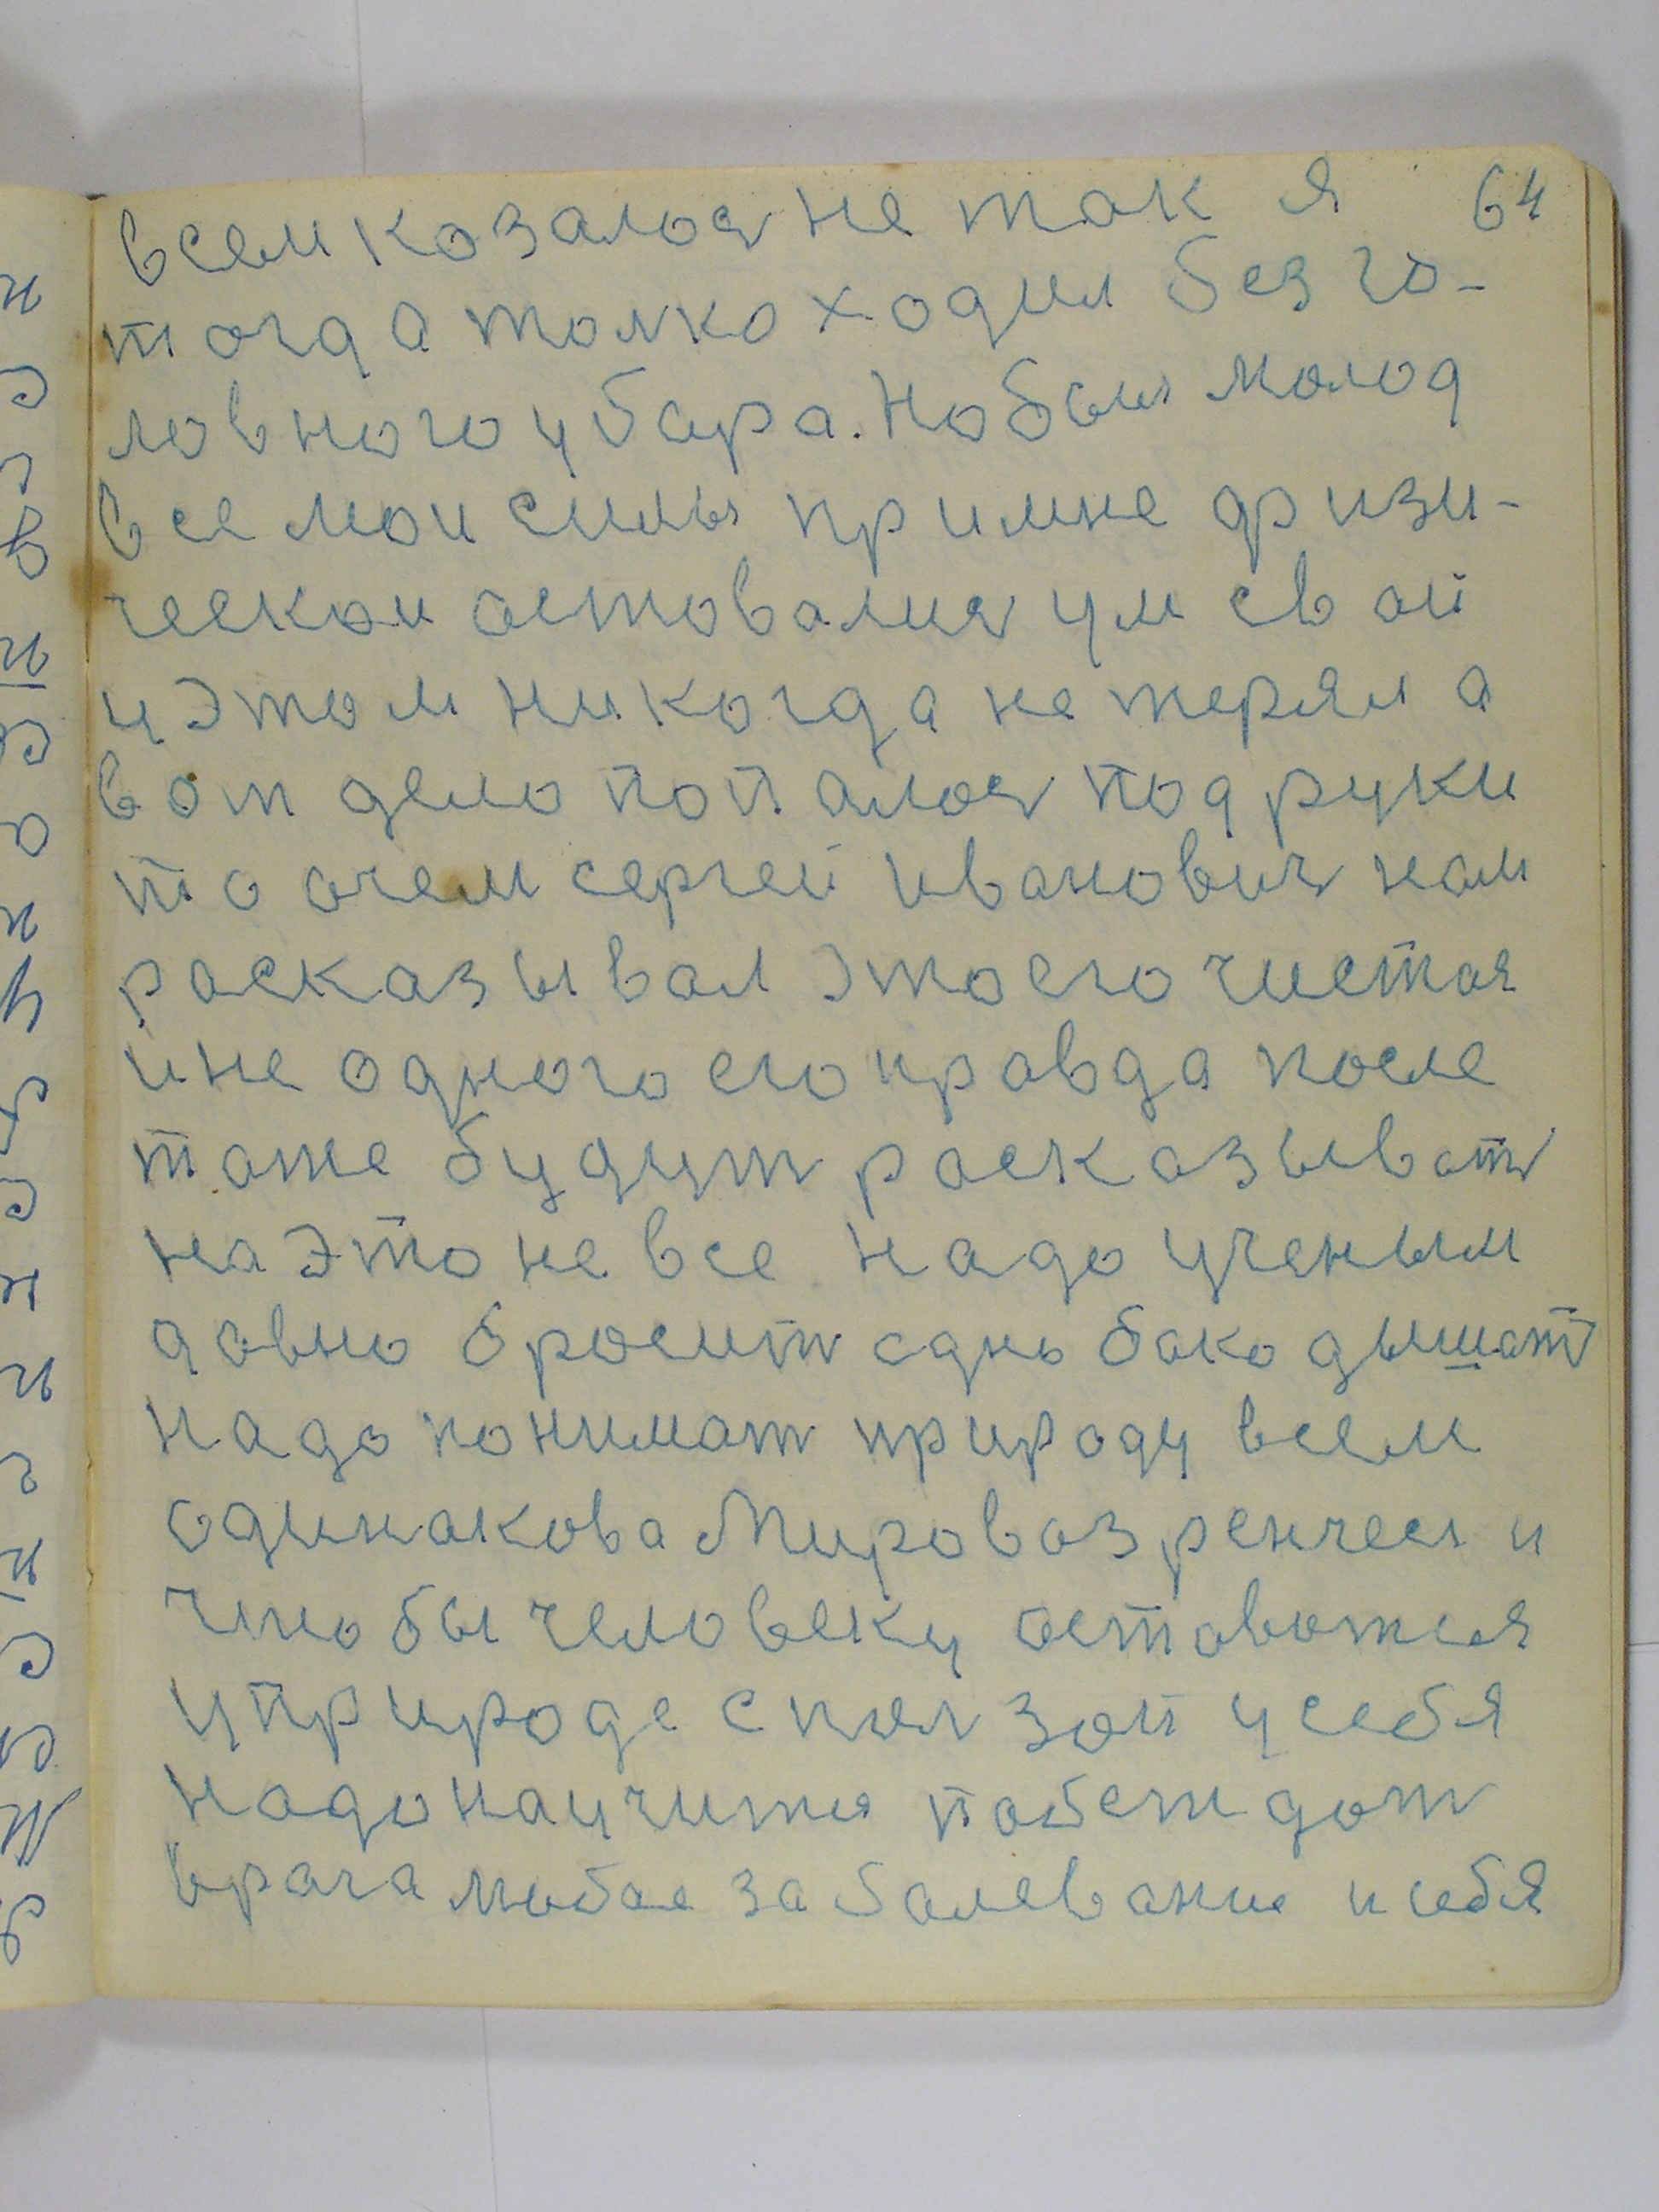 64
всем козалось не так я
тогда толко ходил без го-
ловного убора. Но был молод
все мои силы при мне физи-
ческои оставались ум свой
у этом никогда не терял а
вот дело попалось под руки
то о чем сергей иванович нам
расказывал это его чистая
и не одного его правда после
тоже будут расказывать
на это не все надо ученым
давно бросить однобако дышать
надо понимат природу всем
одинакова Мировозренчески
чтобы человеку оставатися
у природе с ползой у себя
надо научится побеждат
врага любое заболевание и себя